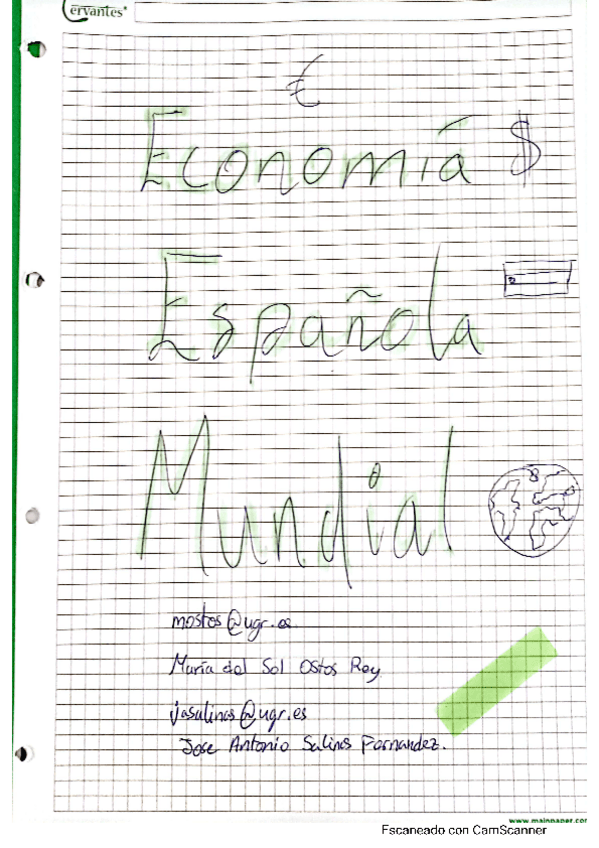 Cervantes
€
Economiá $
Española
Mundial
mostos@ugr.es
María del Sol Ostos Rey
jasalinas@ugr.es
Jose Antonio Salinas Fernandez.
www.mainpaper.com
Escaneado con CamScanner